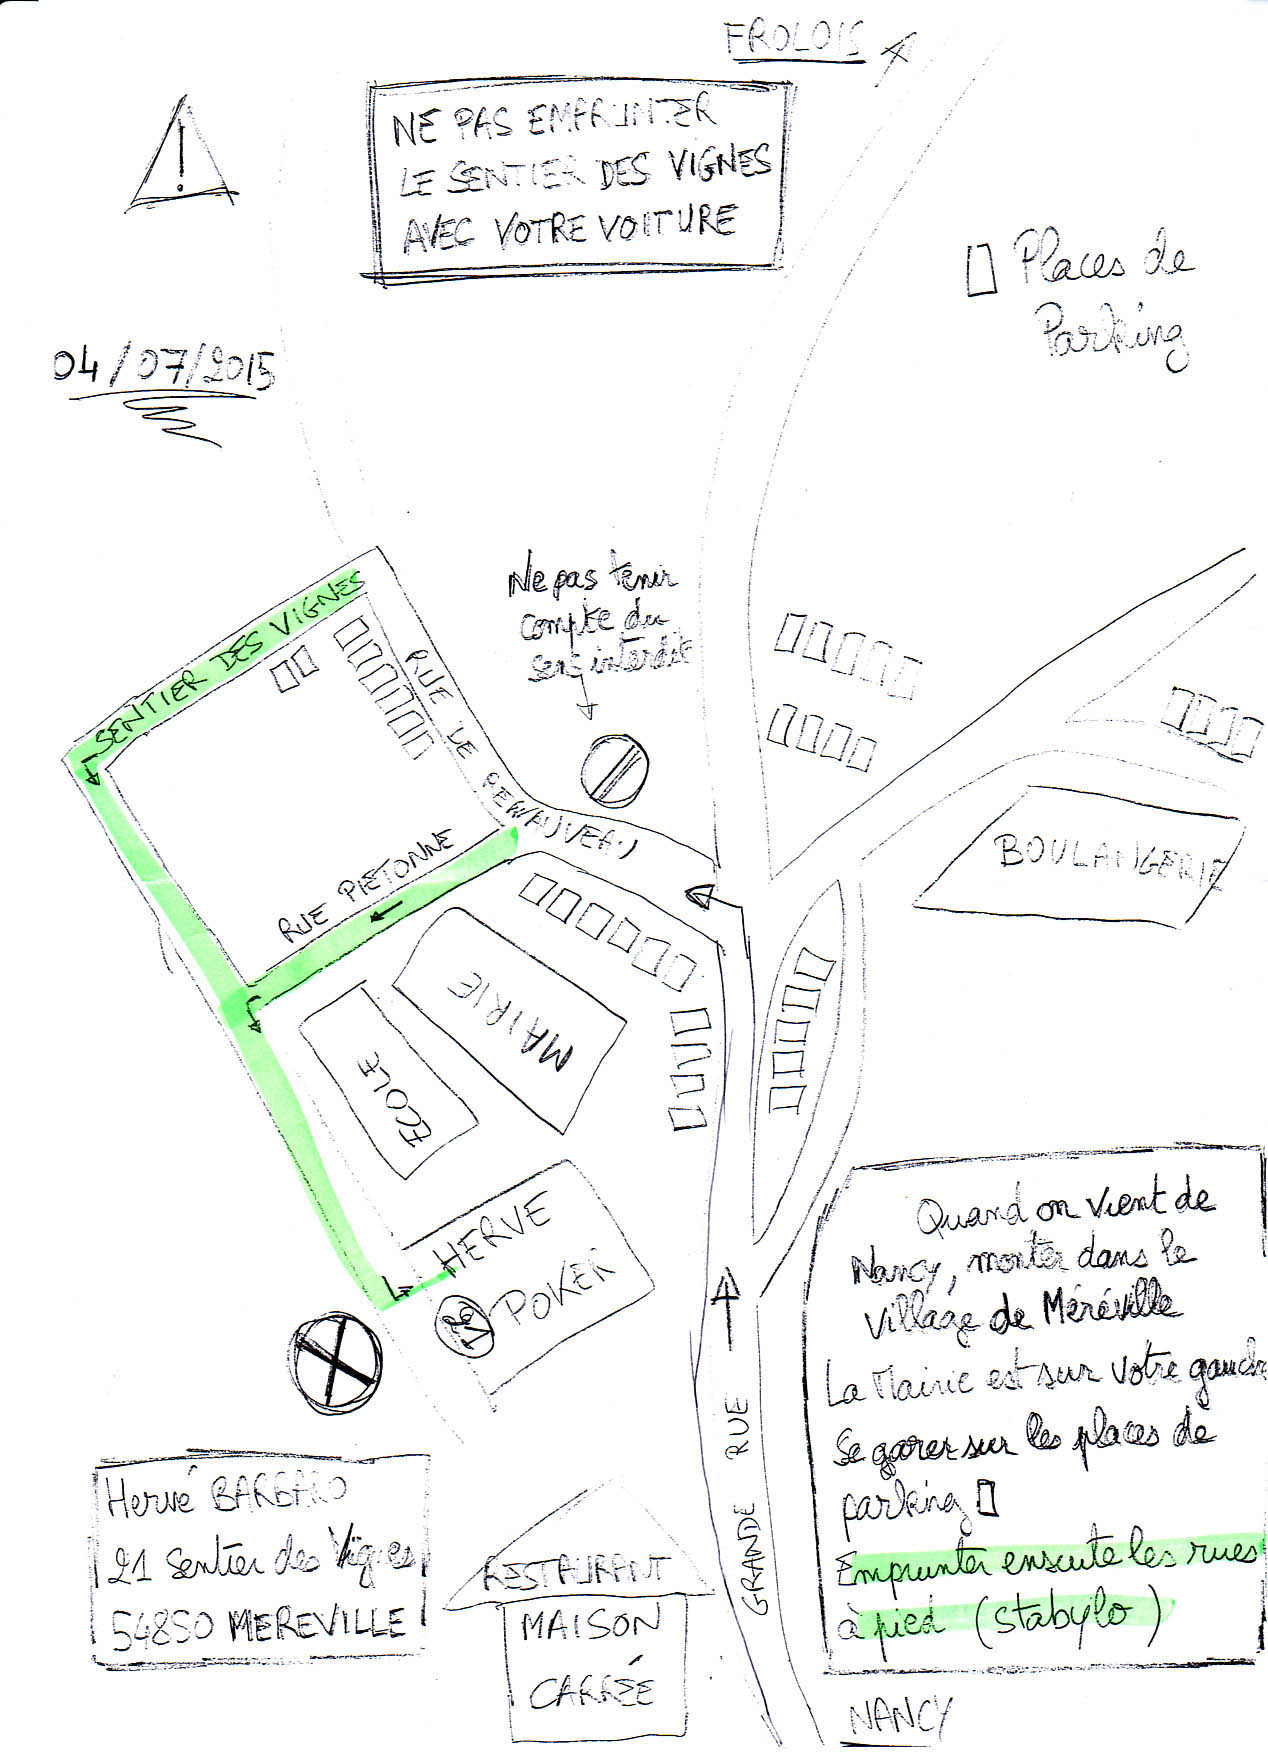 FROLOIS
NE PAS EMPRUNTER
LE SENTIER DES VIGNES
AVEC VOTRE VOITURE
Places de
Parking
04/07/2015
Ne pas tenir
compte du
sens interdit
SENTIER DES VIGNES
RUE DE
RUE PIETONNE
BOULANGERIE
MAIRIE
ECOLE
HERVE
POKER
Quand on vient de
Nancy, monter dans le
village de Méréville
La Mairie est sur votre gauche
Se garer sur les places de
parking
Emprunter ensuite les rues
à pied (stabylo)
GRANDE RUE
Hervé BARBARO
21 Sentier des Vignes
54850 MEREVILLE
RESTAURANT
MAISON
CARRÉE
NANCY